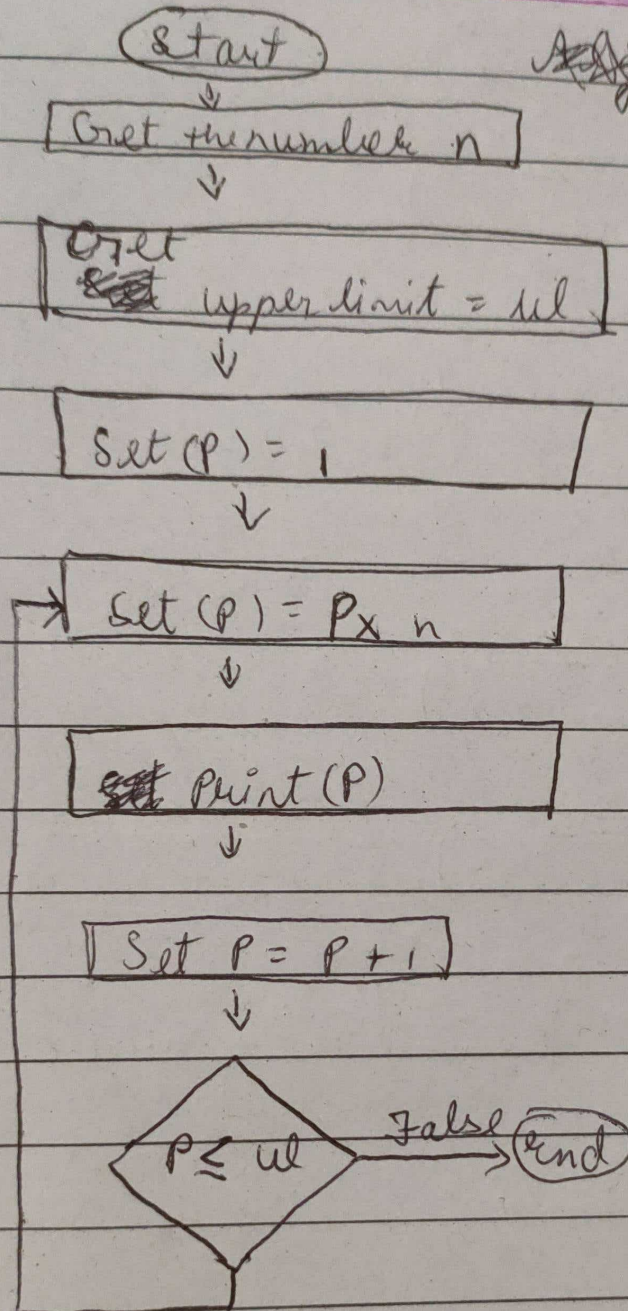 Start
Get the number n
Get
upper limit = ul
Set (P) = 1
Set (P) = P x n
Print (P)
Set P = P + 1
P ≤ ul
False
End